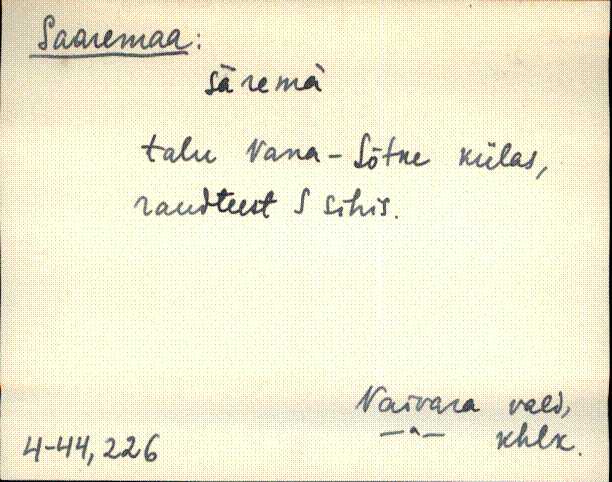 Saaremaa:
säremä
talu Vana-Sõtke külas,
raudteest S sihis.
Vaivara vald,
—"— khlk.
4-44, 226